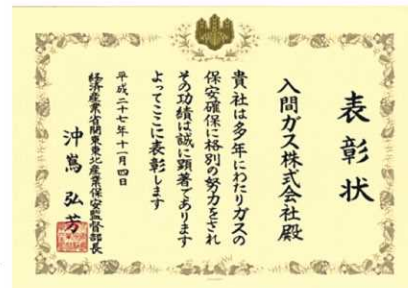 表彰状
入間ガス株式会社殿
貴社は多年にわたりガスの
保安確保に格別の努力をされ
その功績は誠に顕著であります
よってここに表彰します
平成二十七年十一月四日
経済産業省関東東北産業保安監督部長
沖嶌弘芳